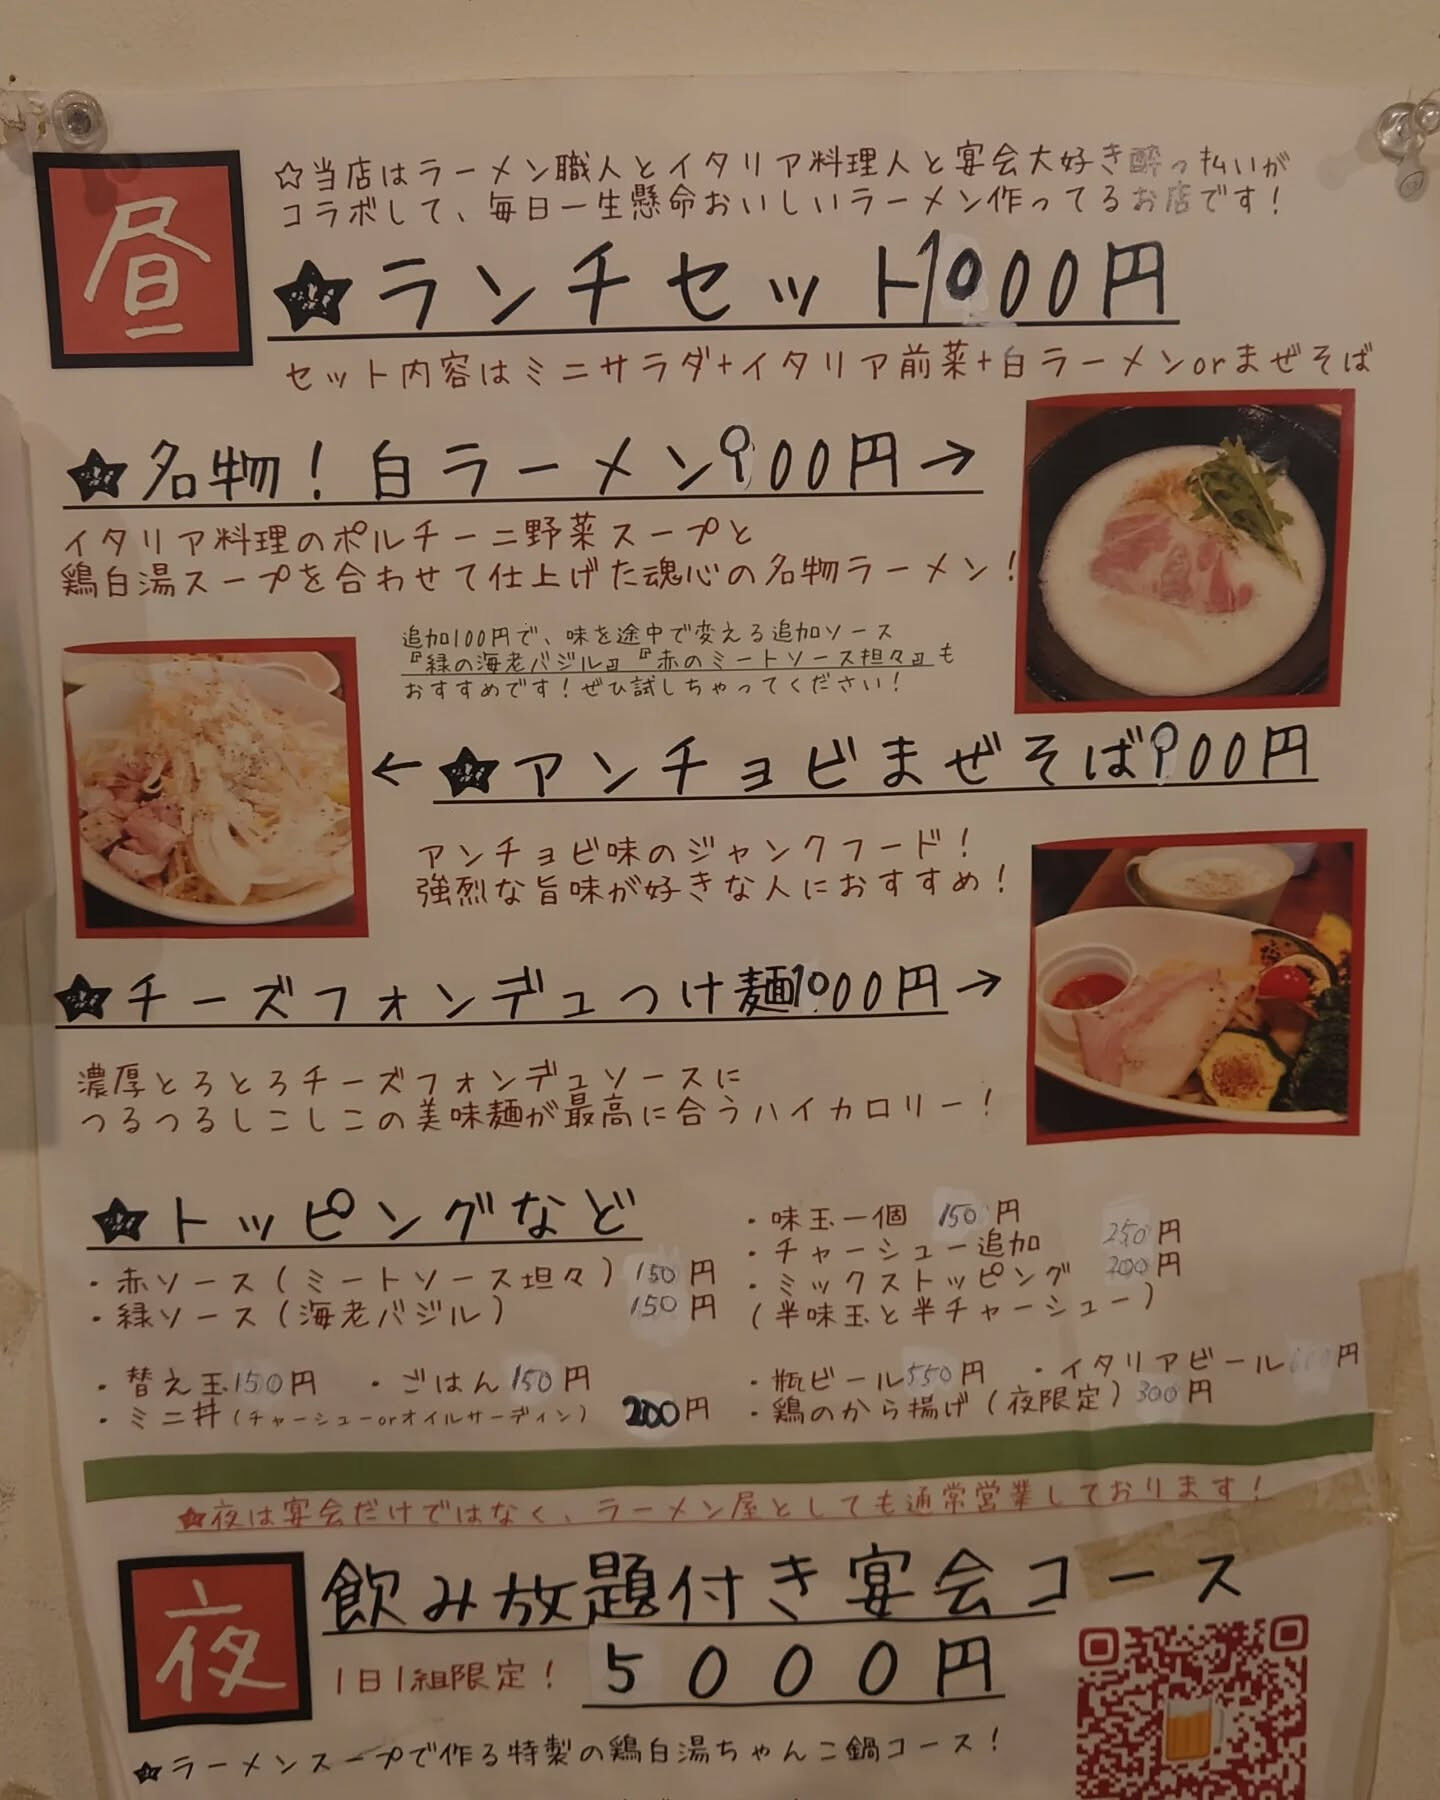 昼
☆当店はラーメン職人とイタリア料理人と宴会大好き酔っ払いが
コラボして、毎日一生懸命おいしいラーメン作ってるお店です!
★ランチセット1000円
セット内容はミニサラダ+イタリア前菜+白ラーメンorまぜそば
★名物!白ラーメン900円→
イタリア料理のポルチーニ野菜スープと
鶏白湯スープを合わせて仕上げた魂心の名物ラーメン!
追加100円で、味を途中で変える追加ソース
『緑の海老バジル』『赤のミートソース坦々』も
おすすめです!ぜひ試しちゃってください!
←★アンチョビまぜそば900円
アンチョビ味のジャンクフード!
強烈な旨味が好きな人におすすめ!
★チーズフォンデュつけ麺1000円→
濃厚とろとろチーズフォンデュソースに
つるつるしこしこの美味麺が最高に合うハイカロリー!
★トッピングなど
・赤ソース(ミートソース坦々)150円
・緑ソース(海老バジル) 150円
・替え玉150円 ・ごはん150円
・ミニ丼(チャーシューorオイルサーディン) 200円
・味玉一個 150円
・チャーシュー追加 250円
・ミックストッピング 200円
(半味玉と半チャーシュー)
・瓶ビール550円 ・イタリアビール 円
・鶏のから揚げ(夜限定)300円
★夜は宴会だけではなく、ラーメン屋としても通常営業しております!
夜
飲み放題付き宴会コース
1日1組限定! 5000円
★ラーメンスープで作る特製の鶏白湯ちゃんこ鍋コース!